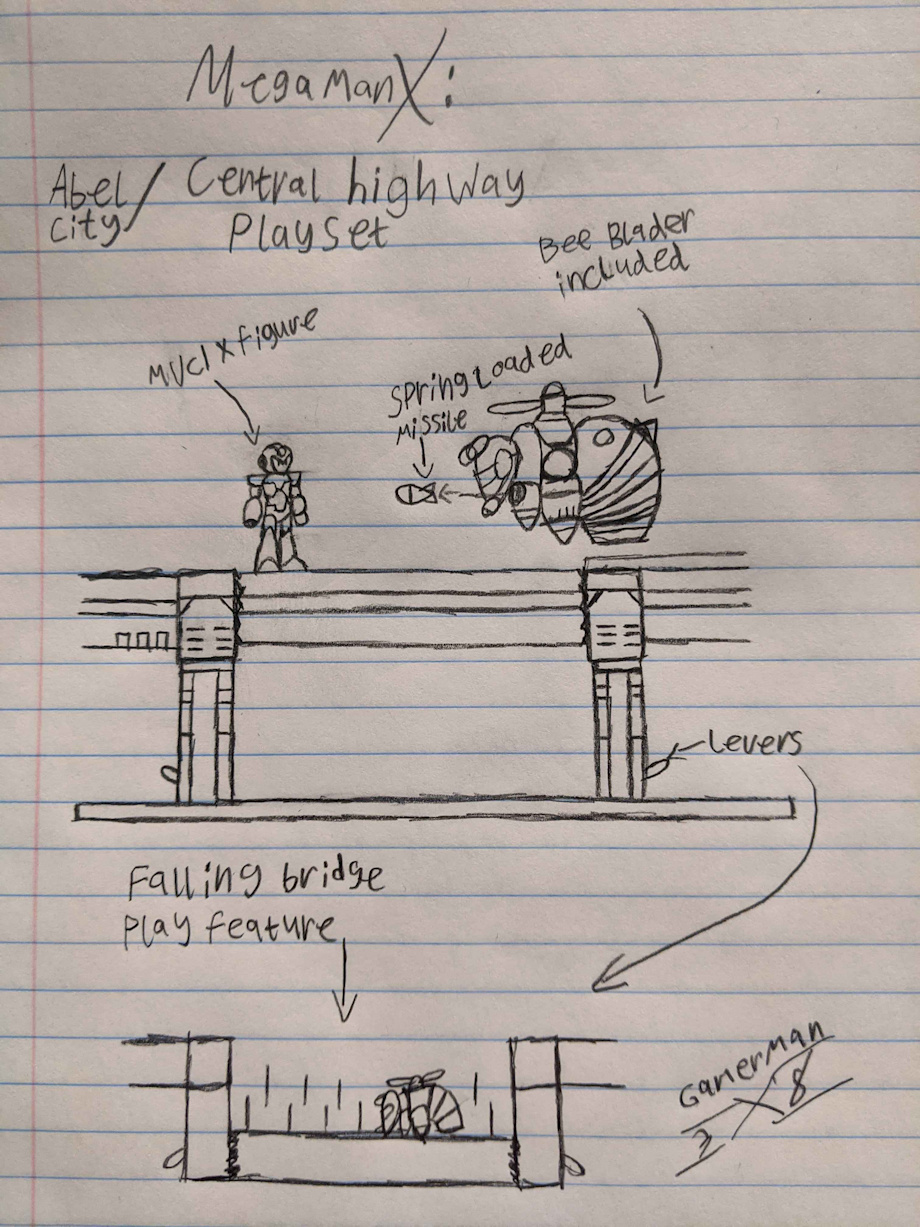 MegamanX:
Abel City/ Central highway
Playset
Bee Blader
included
MVCI X figure
Spring Loaded
Missile
Levers
Falling bridge
Play feature
Gamerman
3 X 8